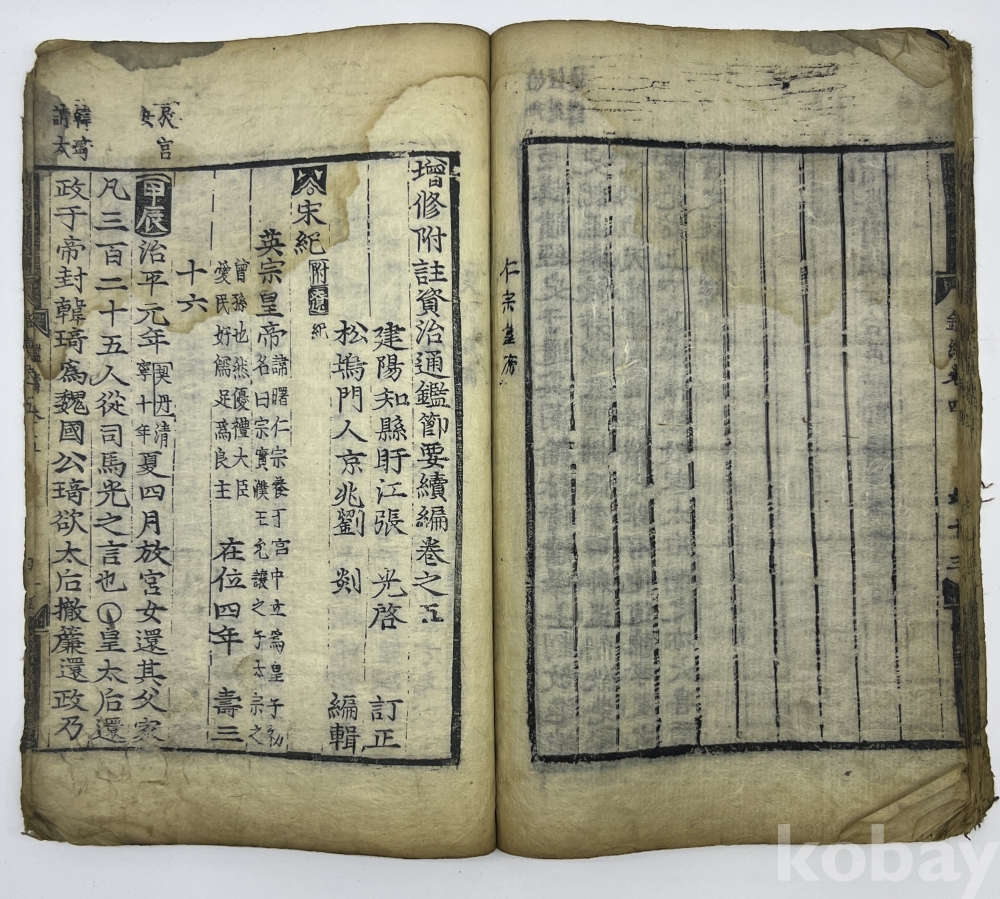 仁宗
增修附註資治通鑑節要續編卷之五
建陽知縣旴江張 光啓 訂正
松塢門人京兆劉 剡 編輯
宋紀 附遼紀
英宗皇帝 諱曙仁宗養于宮中立爲皇子初
名曰宗實濮王允讓之子太宗之
曾孫也然優禮大臣
愛民好儒足爲良主 在位四年 壽三
十六
宮
女
甲辰 治平元年 契丹清寧十年 夏四月放宮女還其父家
凡三百二十五人從司馬光之言也○皇太后還
韓琦
請太
政于帝封韓琦爲魏國公琦欲太后撤簾還政乃
kobay